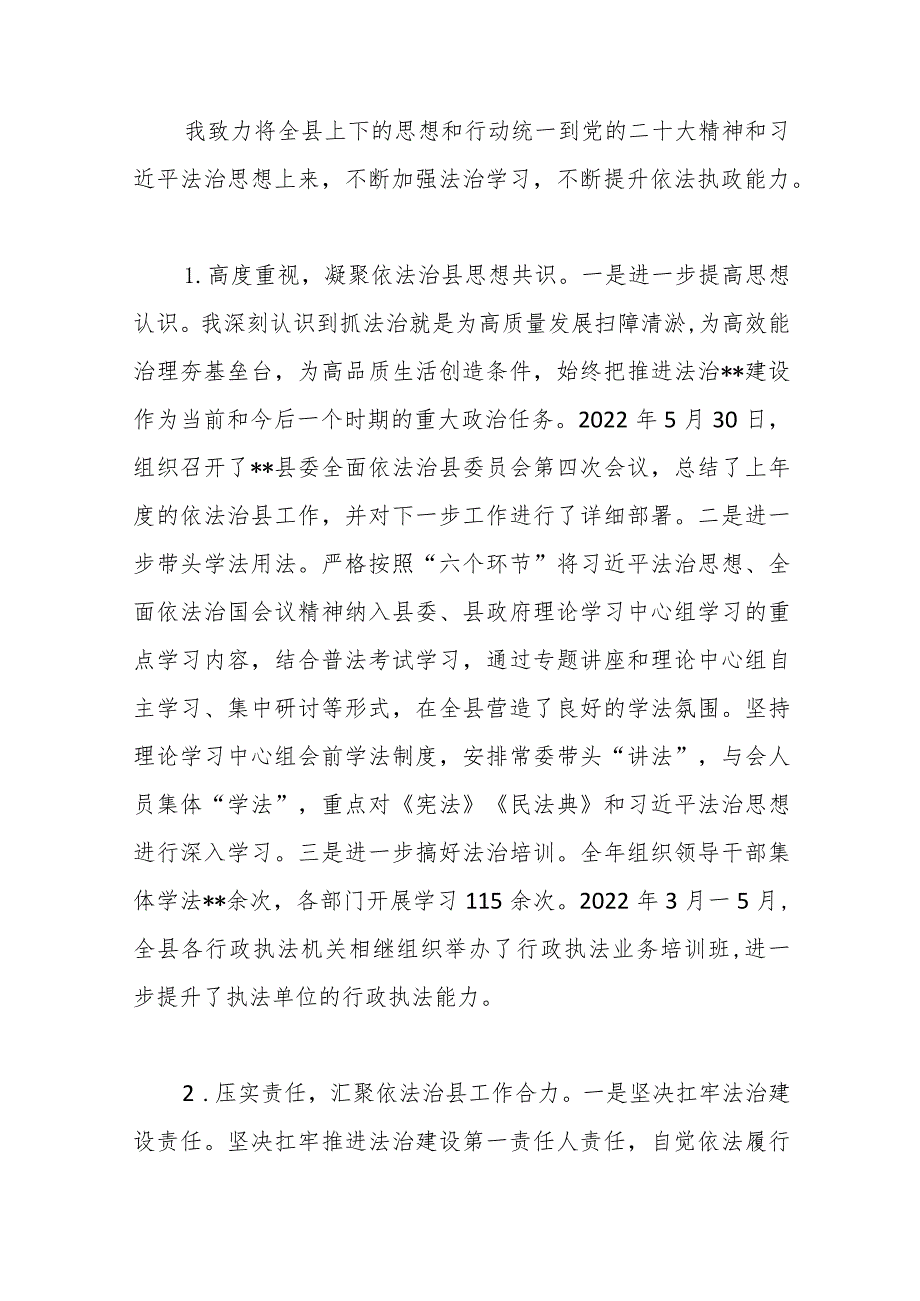 我致力将全县上下的思想和行动统一到党的二十大精神和习
近平法治思想上来，不断加强法治学习，不断提升依法执政能力。
1. 高度重视，凝聚依法治县思想共识。一是进一步提高思想
认识。我深刻认识到抓法治就是为高质量发展扫障清淤,为高效能
治理夯基垒台，为高品质生活创造条件，始终把推进法治**建设
作为当前和今后一个时期的重大政治任务。2022 年 5 月 30 日，
组织召开了**县委全面依法治县委员会第四次会议，总结了上年
度的依法治县工作，并对下一步工作进行了详细部署。二是进一
步带头学法用法。严格按照“六个环节”将习近平法治思想、全
面依法治国会议精神纳入县委、县政府理论学习中心组学习的重
点学习内容，结合普法考试学习，通过专题讲座和理论中心组自
主学习、集中研讨等形式，在全县营造了良好的学法氛围。坚持
理论学习中心组会前学法制度，安排常委带头“讲法”，与会人
员集体“学法”，重点对《宪法》《民法典》和习近平法治思想
进行深入学习。三是进一步搞好法治培训。全年组织领导干部集
体学法**余次，各部门开展学习 115 余次。2022 年 3 月一 5 月,
全县各行政执法机关相继组织举办了行政执法业务培训班,进一
步提升了执法单位的行政执法能力。
2 . 压实责任，汇聚依法治县工作合力。一是坚决扛牢法治建
设责任。坚决扛牢推进法治建设第一责任人责任，自觉依法履行